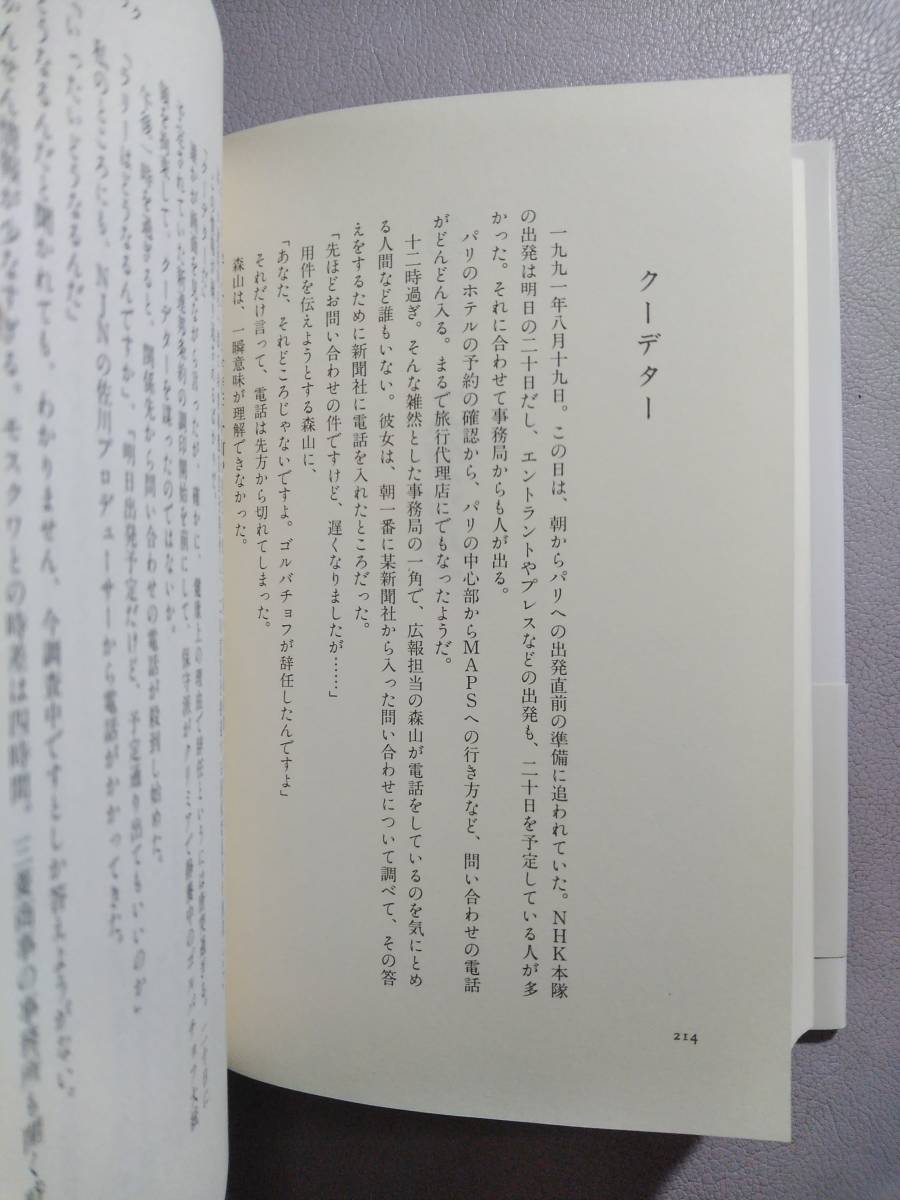 クーデター
一九九一年八月十九日。この日は、朝からパリへの出発直前の準備に追われていた。NHK本隊
の出発は明日の二十日だし、エントラントやプレスなどの出発も、二十日を予定している人が多
かった。それに合わせて事務局からも人が出る。
パリのホテルの予約の確認から、パリの中心部からMAPSへの行き方など、問い合わせの電話
がどんどん入る。まるで旅行代理店にでもなったようだ。
十二時過ぎ。そんな雑然とした事務局の一角で、広報担当の森山が電話をしているのを気にとめ
る人間など誰もいない。彼女は、朝一番に某新聞社から入った問い合わせについて調べて、その答
えをするために新聞社に電話を入れたところだった。
「先ほどお問い合わせの件ですけど、遅くなりましたが……」
用件を伝えようとする森山に、
「あなた、それどころじゃないですよ。ゴルバチョフが辞任したんですよ」
それだけ言って、電話は先方から切れてしまった。
森山は、一瞬意味が理解できなかった。
214
クーデターを謀ったのではないか。
関係先から問い合わせの電話が殺到し始めた。
「明日出発予定だけど、予定通り出てもいいのか」
私のところにも、NJNの佐川プロデューサーから電話がかかってきた。
いったいどうなるんだ」
どうなるんだと聞かれても、わかりません、今調査中ですとしか答えようがない。
モスクワとの時差は四時間。